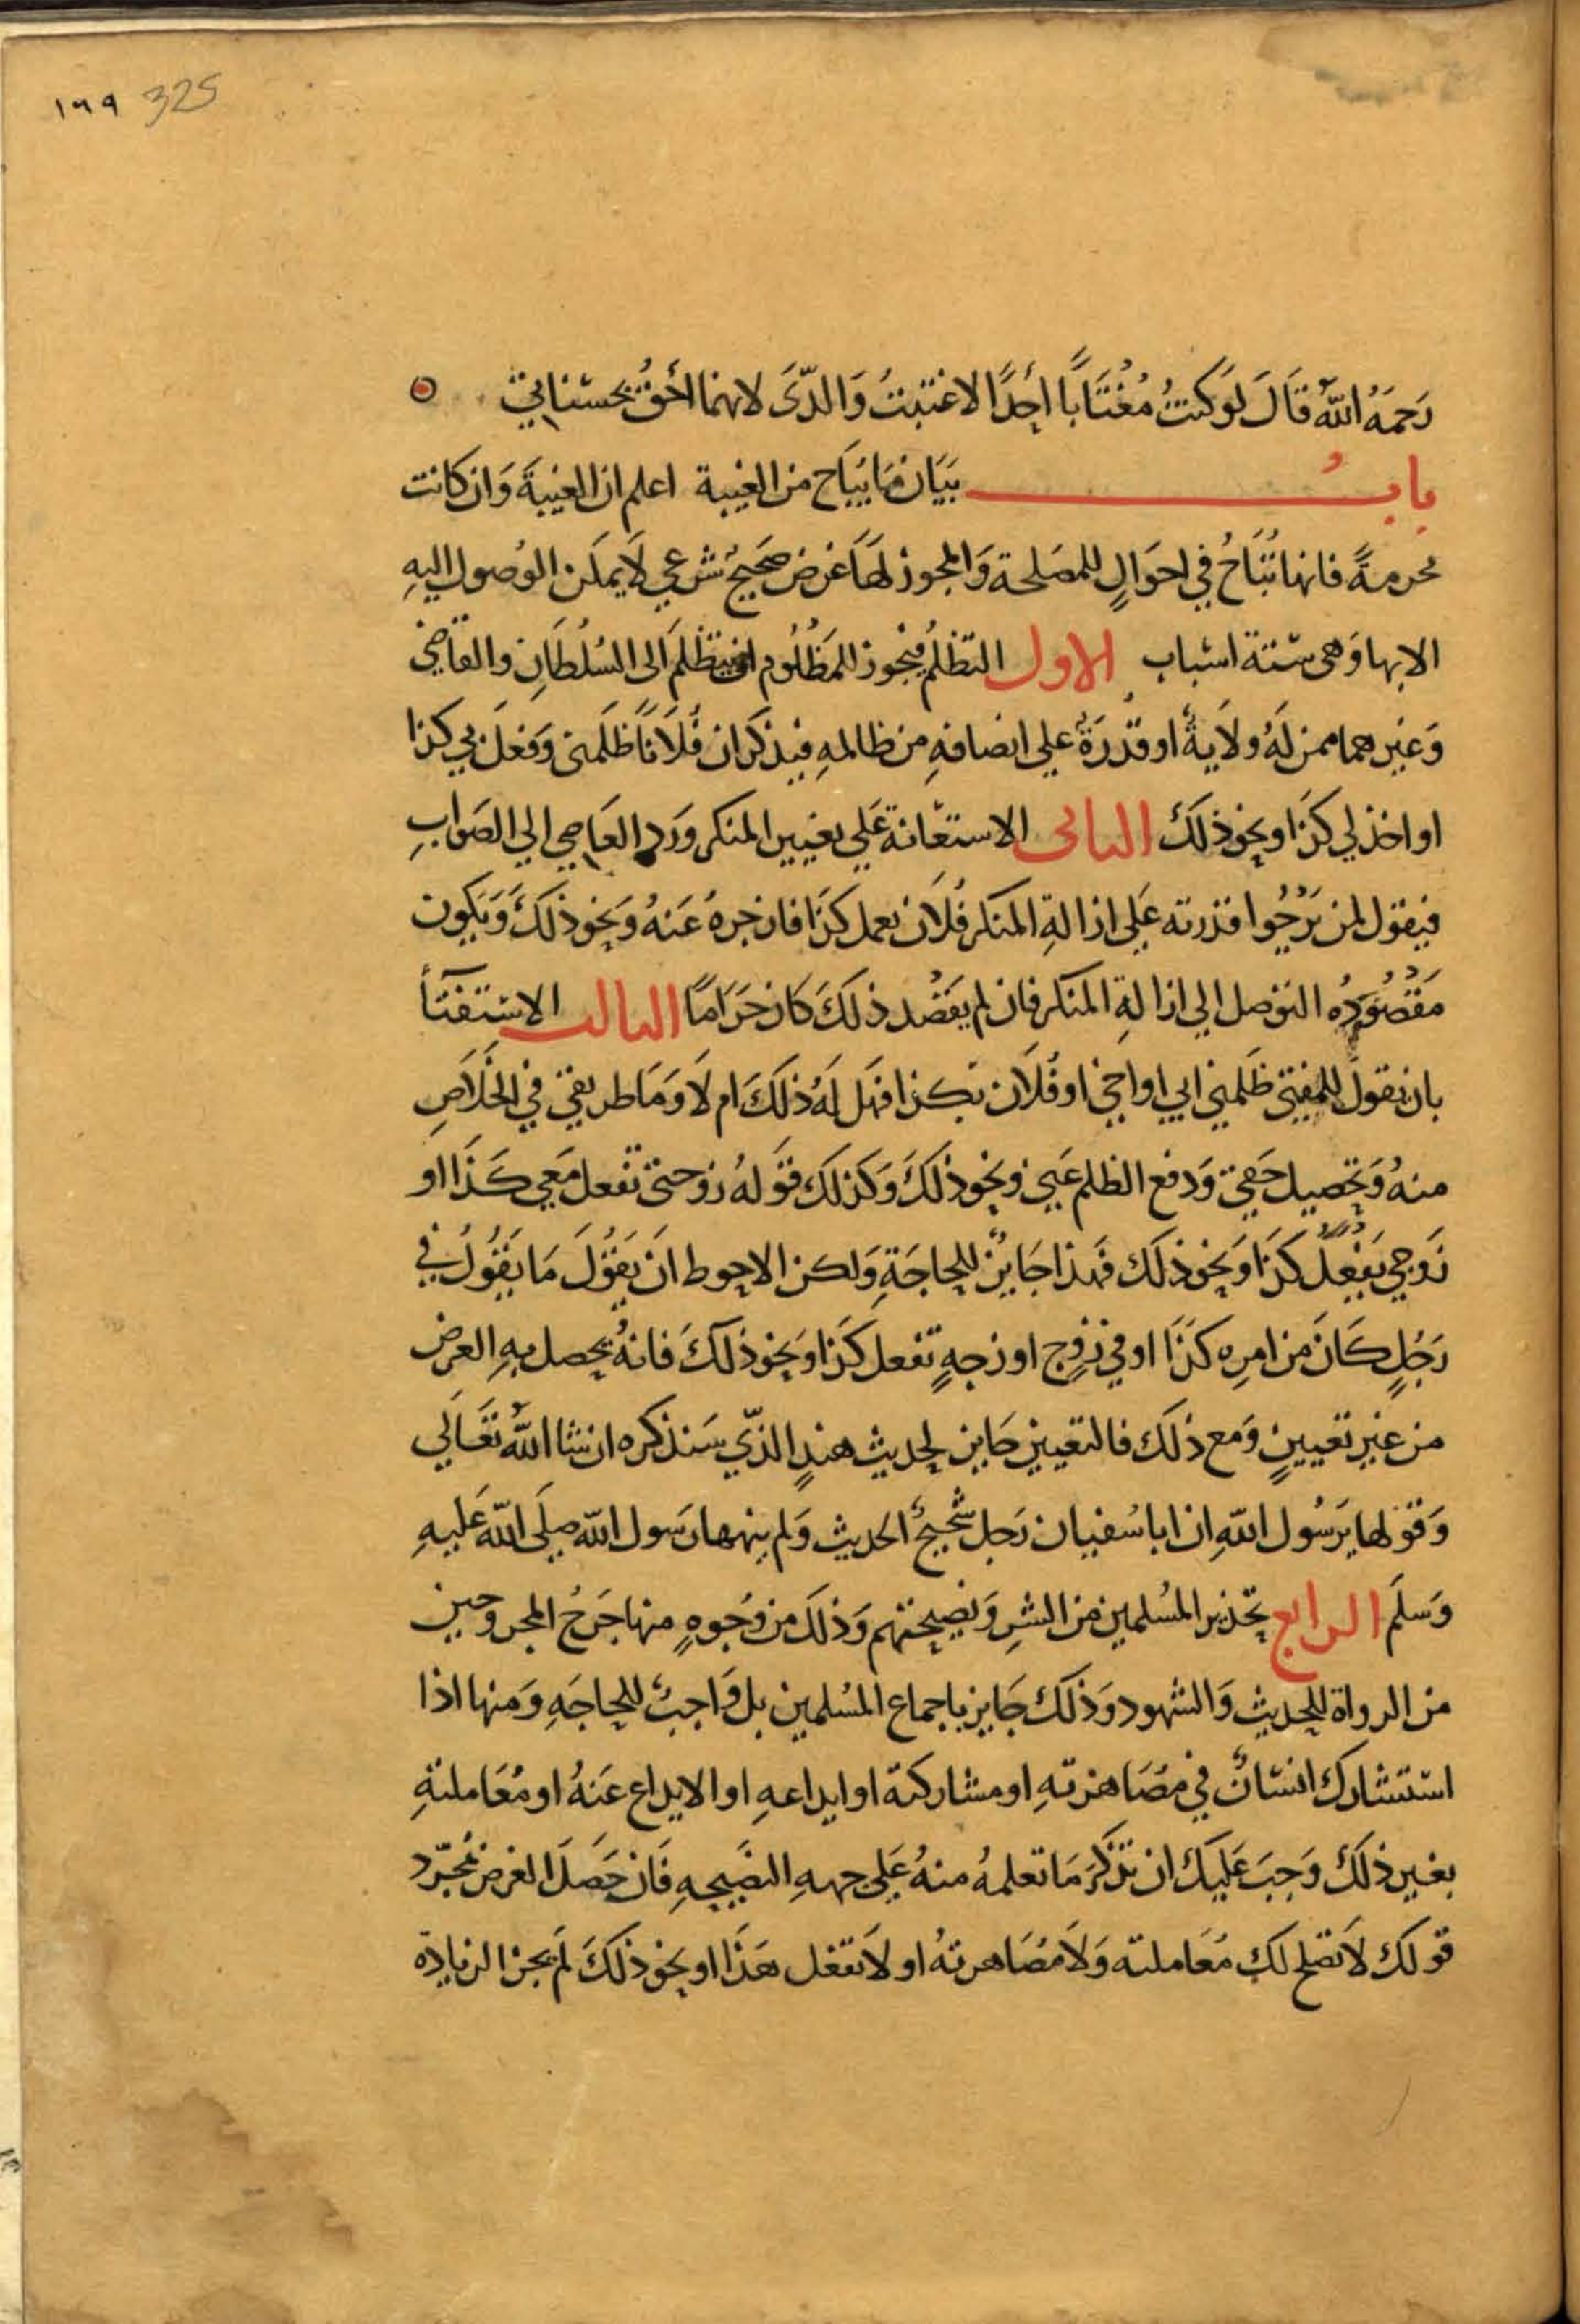 ١٦٩ 325
رَحمَهُ اللهُ قَالَ لَو كنتُ مُغتَابًا أحدًا لاغتبتُ وَالدَّىَ لانهما احَقُّ بحسناتي
بابُ بَيَان مَا يُبَاح من الغيبة اعلم ان الغيبَةَ وَان كانت
محرمةً فانها تُبَاحُ في احوَالٍ للمصَلحة وَالمجوز لهَا غرض صَحيحٌ شرعي لَا يمكن الوُصول اليهِ
الا بها وَهى ستة اسباب الاول التظلمُ فيجوز للمَظلُوم ان يتظلمَ الى السُلطَانِ والقاضي
وَغيرهما ممن لَهُ ولَايةٌ او قدرَةٌ علي انصافهِ من ظالمهِ فيذكر ان فُلَانًا ظلَمنى وَفعلَ بي كذا
او اخذ لي كذَا ونحو ذلكَ الثانى الاستعَانة عَلي تغيير المنكر ورَد العَاصي الي الصَوابِ
فيقول لمن يَرْجُوا قدرته عَلي ازالةِ المنكر فُلَان يعمل كذَا فازجرهُ عَنهُ وَنحو ذلكَ وَيكون
مَقصُودُه التوصل الي ازالةِ المنكر فان لم يَقصُد ذلكَ كَان حَرَامًا الثالث الاستفتَآ
بان يقول للمفتي ظَلمني ابي او اخي او فُلَان بكذا فهَل لهُ ذلكَ ام لَا وَمَا طريقي في الخلَاصِ
منهُ وَتحصيل حَقي وَدفع الظلم عَني ونحو ذلكَ وَكذلكَ قَولهُ زوجتى تفعل مَعي كَذَا او
زَوجي يَفعلُ كذَا وَنحو ذلَك فهَذا جَايزٌ للحاجَةِ وَلكن الاحوط انَ يَقولَ مَا يَقُولُ في
رَجُلٍ كَانَ من امرِه كذَا او في زوجٍ او زجهٍ تفعل كذَا وَنحو ذلكَ فانهُ يحصل بهِ الغرض
من غير تعيينٍ وَمع ذلكَ فالتعيين جَايز لحديث هندٍ الذّي سَنذكره ان شا اللهُ تعَالَي
وَقولها يرَسُول اللهِ ان ابا سُفيان رَجل شحيحٌ الحديث وَلم ينهها رَسول الله صلَى الله عَليهِ
وَسلَم الرابع تحذير المسُلمين من الشرِ وَنصيحتهم وَذلكَ من وجُوهٍ منها جَرحُ المجروحين
من الرواة للحديث وَالشهود وَذلكَ جَايز باجماع المسُلمين بل وَاجبٌ للحاجَهِ وَمنها اذا
استشارك انسَانٌ في مصَاهرتهِ او مشاركتة او ايداعهِ او الايداع عَنهُ او مُعَاملتهِ
بغير ذلكَ وَجبَ عَليكَ ان تذكُرَ مَا تعلمهُ منهُ عَلي جههِ النصَيحهِ فَان حَصَل الغرض بمُجرّد
قولك لَا تصلح لكَ مُعَاملته وَلَا مصُاهرتهُ او لَا تفعل هَذَا او نحو ذلكَ لَم يجز الزيادة